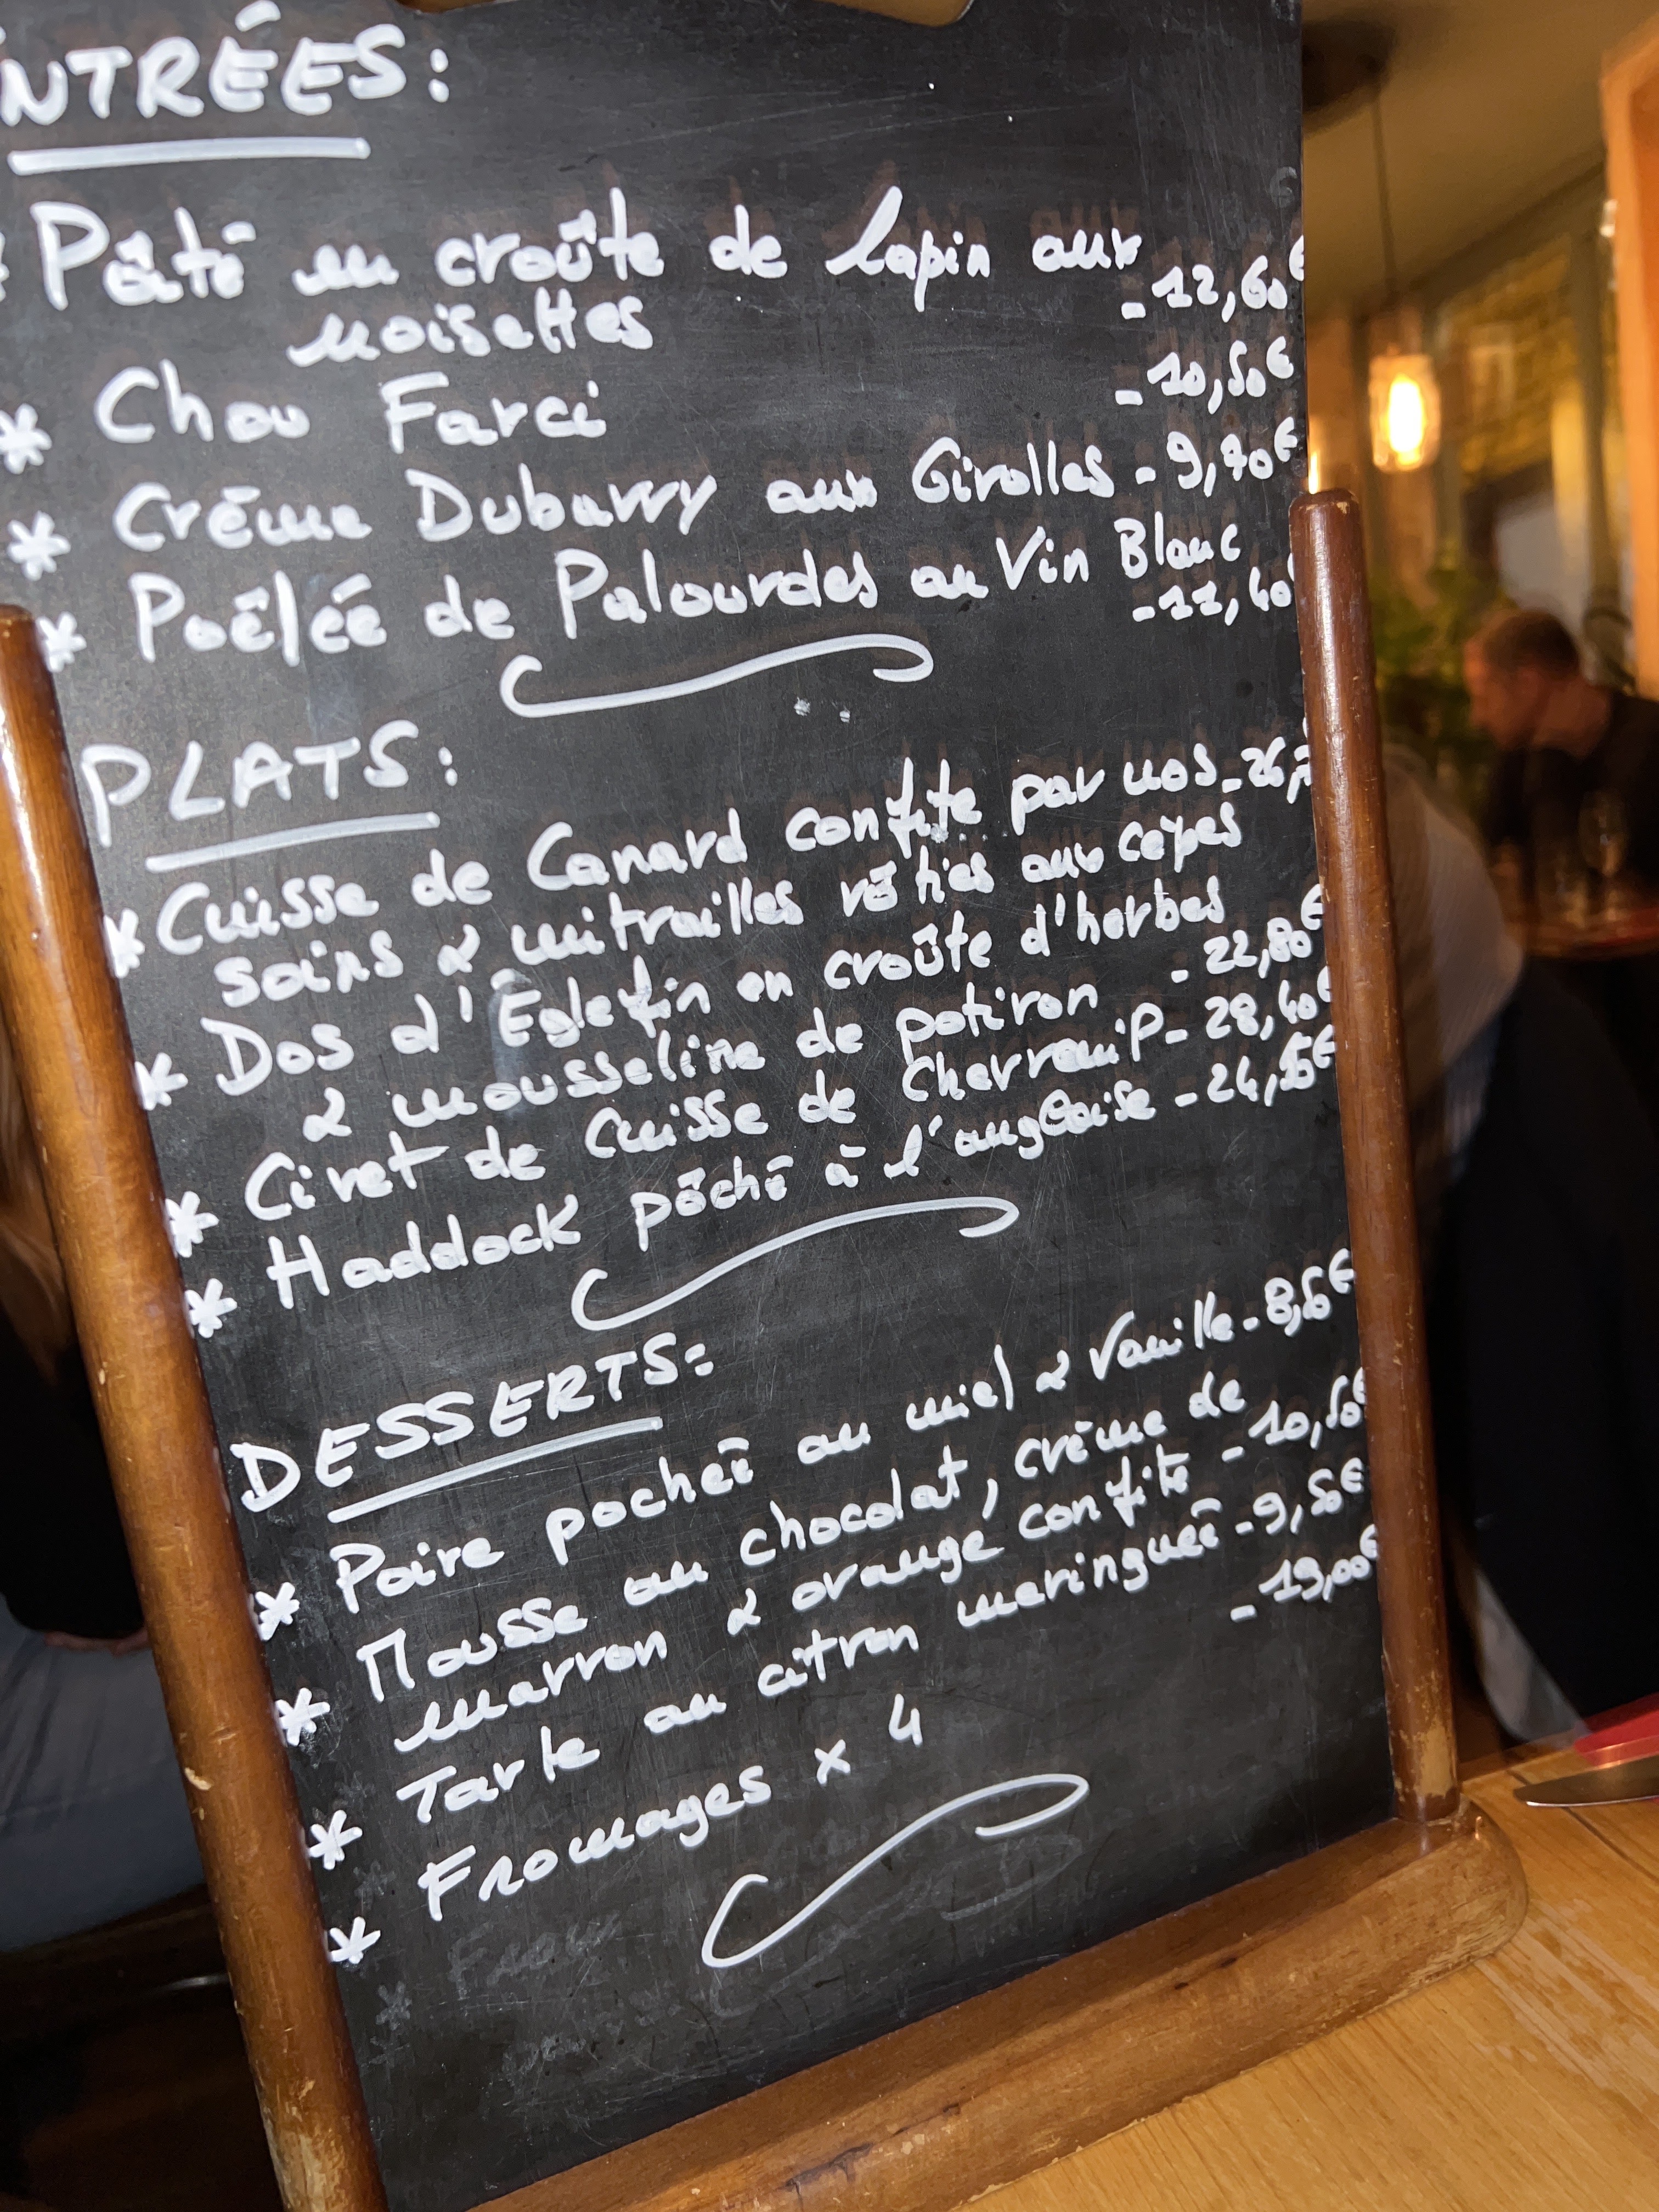 ENTRÉES:
Pâté en croûte de lapin aux
noisettes - 12,60€
* Chou Farci - 10,50€
* Crème Dubarry aux Girolles - 9,70€
* Poêlée de Palourdes au Vin Blanc
- 11,40
PLATS:
* Cuisse de Canard confite par nos - 26,
soins & mitrailles rôties aux cèpes
* Dos d'Eglefin en croûte d'herbes
& mousseline de potiron - 22,80€
* Civet de Cuisse de Chevreuil - 28,40€
* Haddock pôché à l'anglaise - 24,
DESSERTS:
* Poire pochée au miel & Vanille - 8,50€
* Mousse au chocolat, crème de
marron & orange confite - 10,50€
* Tarte au citron meringuée - 9,50€
* Fromages x 4 - 19,00€